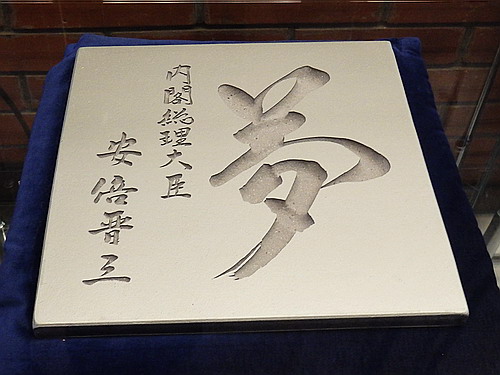 夢
内閣総理大臣
安倍晋三